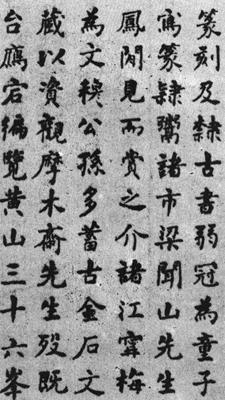 篆刻及隸古書弱冠為童子
寫篆隸鬻諸市梁聞山先生
鳳閒見而賞之介諸江寧梅
為文穆公孫多蓄古金石文
藏以資觀摩木齋先生歿既
台鴈宕編覽黃山三十六峯